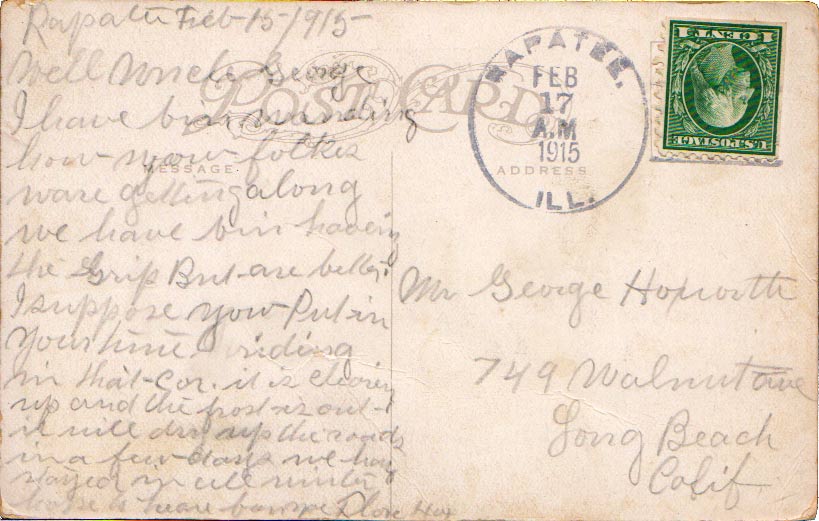 Rapatee Feb-15-1915-
Well Uncle George
I have bin wanding
how yow folkes
ware getting along
we have bin haveing
the Grip But are better
I suppose yow Put in
Your time riding
in that Car. it is clearing
up and the frost is out
it will dry up the roads
in a few days we have
stayed in all winter
to heare from you
POST CARD
MESSAGE
ADDRESS
RAPATEE,
FEB
17
A.M
1915
ILL.
1 CENT 1
U.S. POSTAGE
Mr George Hoxworth
749 Walnut ave
Long Beach
Calif